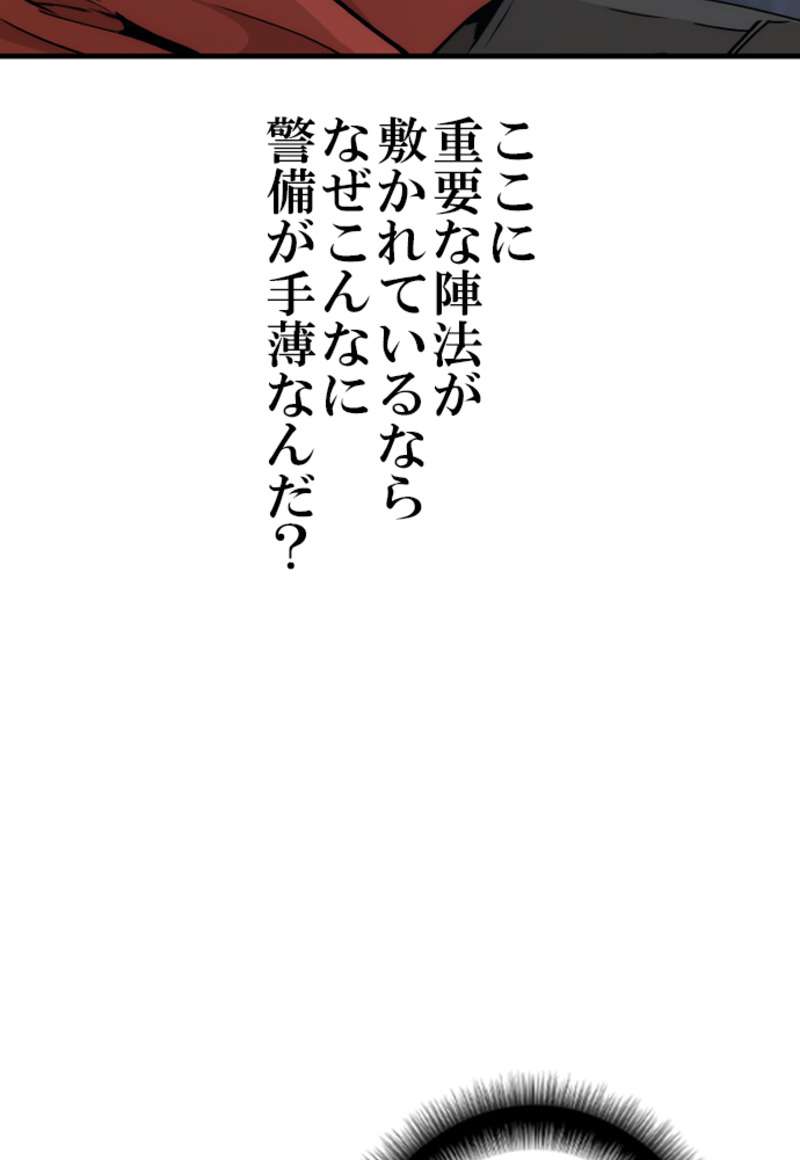 ここに
重要な陣法が
敷かれているなら
なぜこんなに
警備が手薄なんだ？